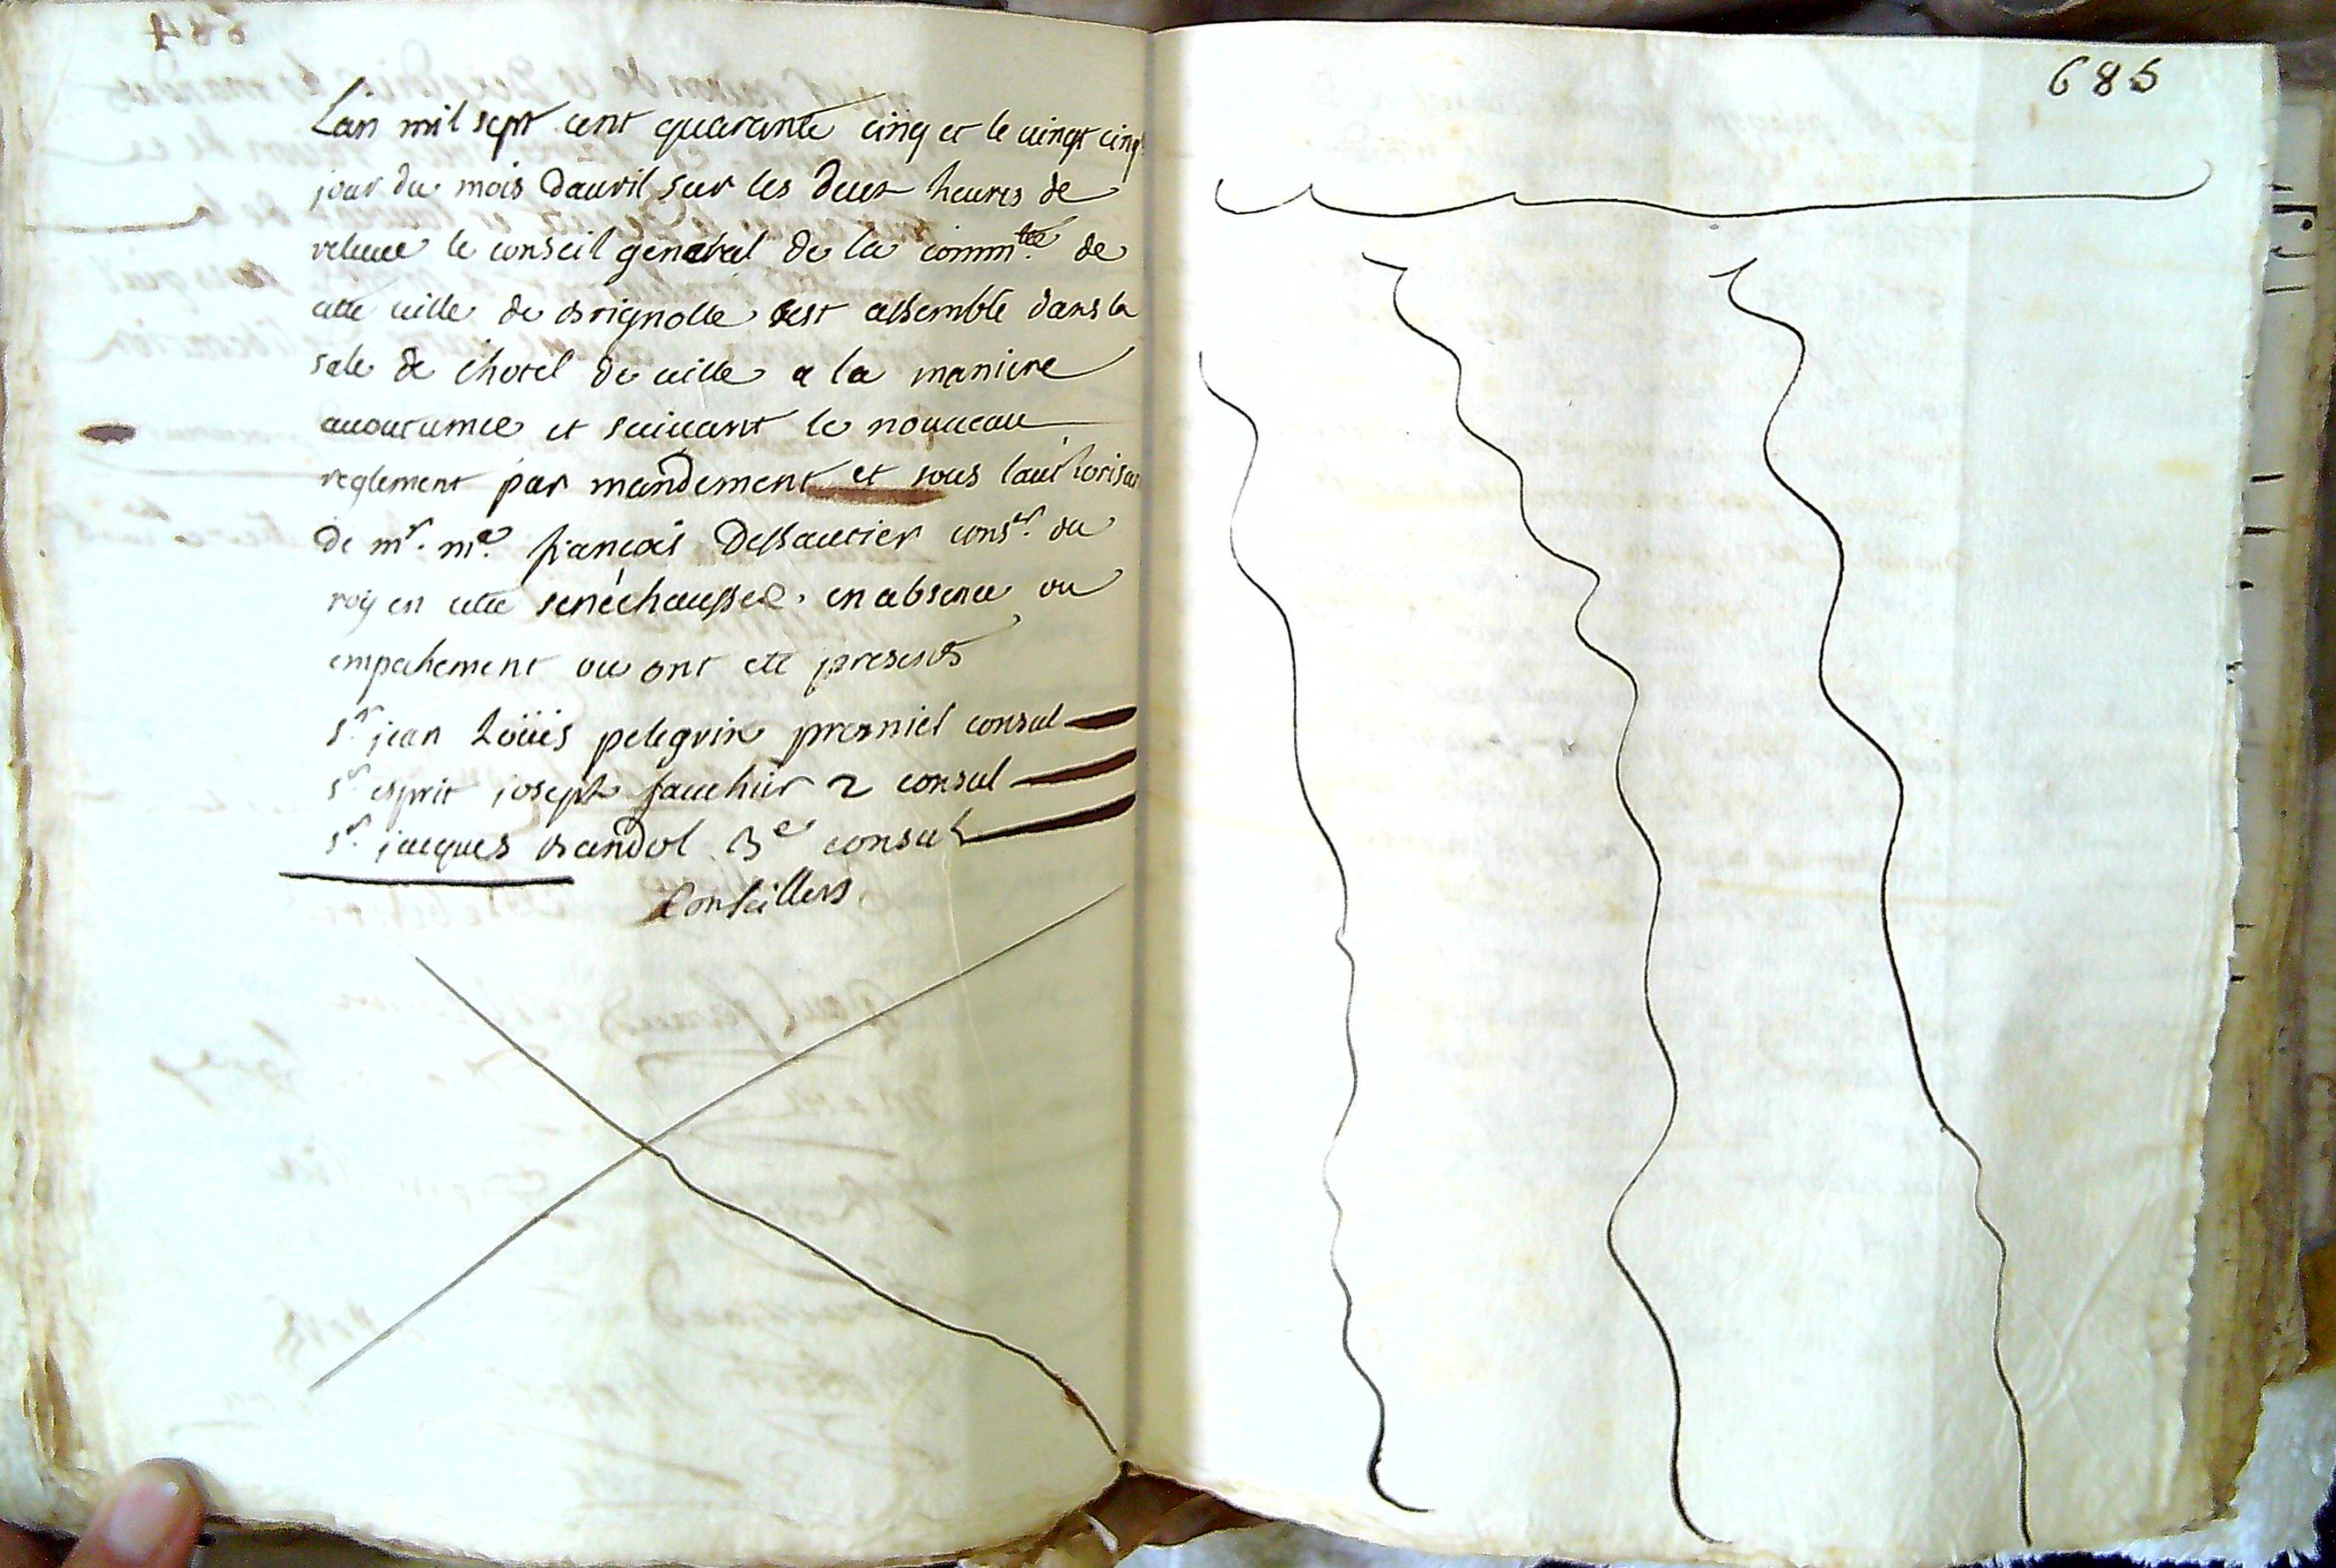 Lan mil sept cent quarante cinq et le vingt cinq
jour du mois dauril sur les deux heures de
releuee le conseil general de la comm.té de
cette uille de Brignolle sest assemblé dans la
sale de lhotel de uille a la maniere
accoutumee et suiuant le nouueau
reglement par mandement et sous lauthorisaon
de mr. me. françois Dessautier consr. du
roy en cette senéchaussee. en absence ou
empechement ou ont eté presents
sr. jean Loüis pelegrin premier consul
sr esprit joseph fauchier 2 consul
sr. jacques Bandol 3e consul
Conseillers
685